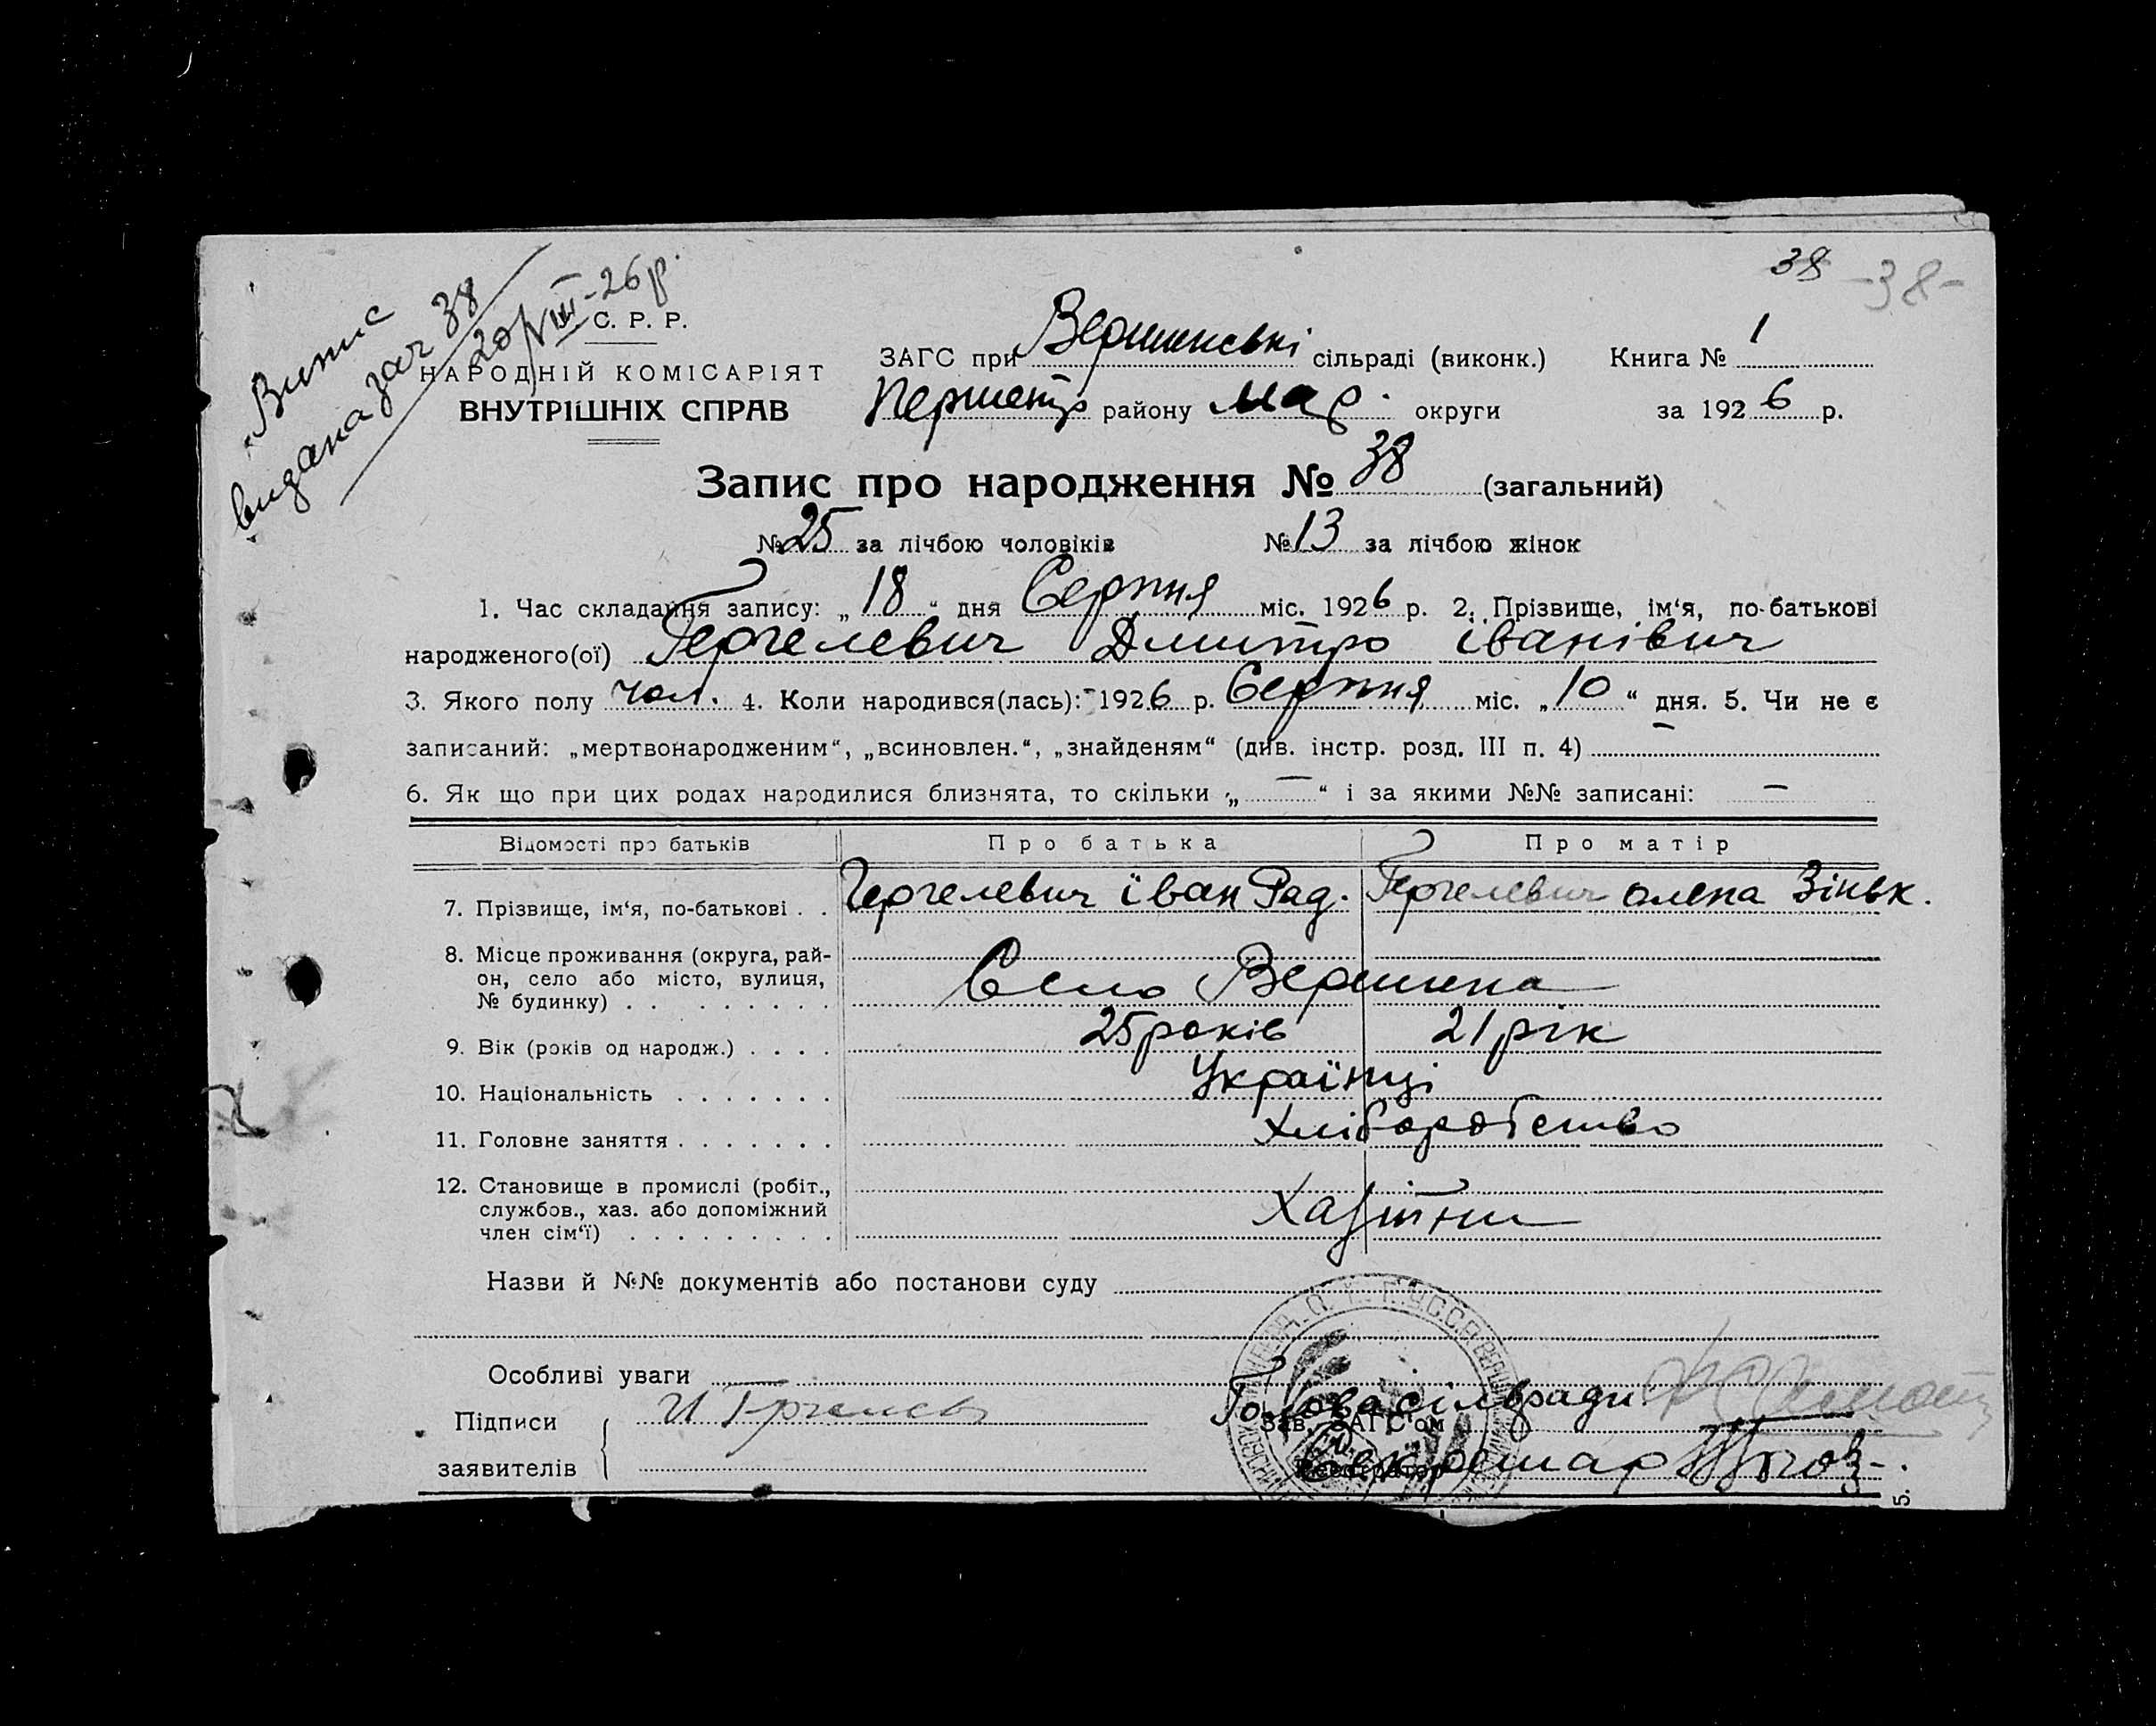 38 -38-
Випис
видана зач 38
20/VIII-26р.
С. Р. Р.
НАРОДНІЙ КОМІСАРІЯТ
ВНУТРІШНІХ СПРАВ
ЗАГС при Вершинські сільраді (виконк.) Книга № 1
району Мар. округи за 1926 р.
Запис про народження № 38 (загальний)
№ 25 за лічбою чоловіків № 13 за лічбою жінок
1. Час складання запису: „18“ дня Серпня міс. 1926 р. 2. Прізвище, ім‘я, по-батькові
народженого(ої) Гергелевич Дмитро Іванівич
3. Якого полу чол. 4. Коли народився(лась): 1926 р. Серпня міс. „10“ дня. 5. Чи не є
записаний: „мертвонародженим“, „всиновлен.“, „знайденям“ (див. інстр. розд. III п. 4) —
6. Як що при цих родах народилися близнята, то скільки „—“ і за якими №№ записані: —
Відомості про батьків Про батька Про матір
7. Прізвище, ім‘я, по-батькові . . Гергелевич Іван Рад. Гергелевич Олена Зіньк.
8. Місце проживання (округа, рай-
он, село або місто, вулиця,
№ будинку) . . . . . . . . . Село Вершина
9. Вік (років од народж.) . . . . 25 років 21 рік
10. Національність . . . . . . . Українці
11. Головне заняття . . . . . . . Хліборобство
12. Становище в промислі (робіт.,
службов., хаз. або допоміжний
член сім‘ї) . . . . . . . . .
Назви й №№ документів або постанови суду
Особливі уваги
Підписи
заявителів
Голова сільради
Зав. ЗАГС‘ом
Секретар
Реєстратор
5.